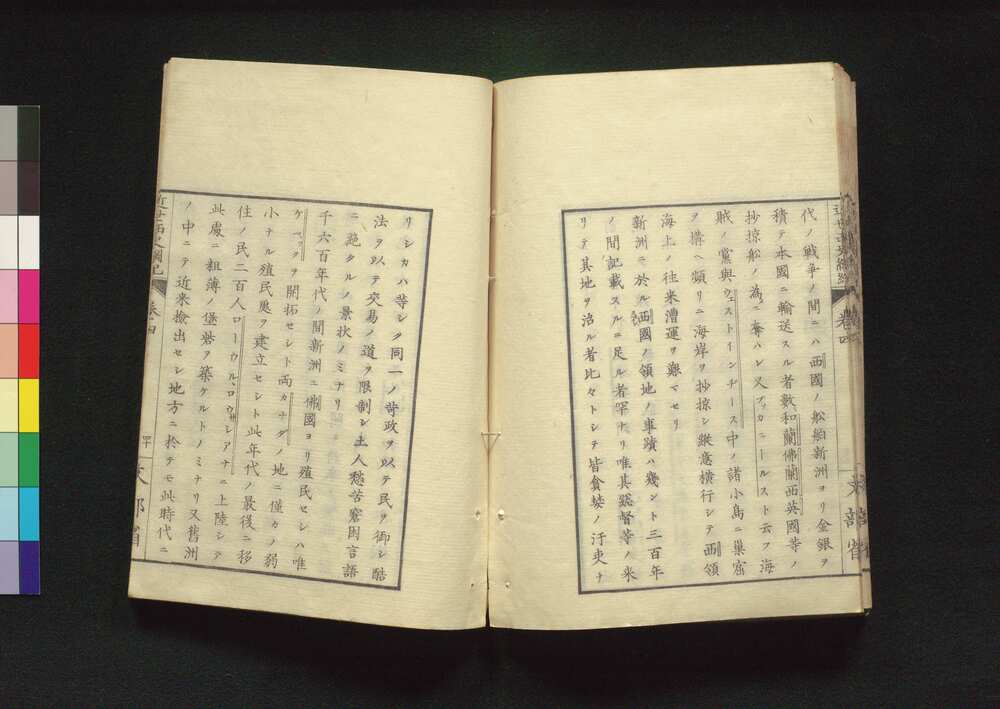 代ノ戰爭ノ間ニハ西國ノ舩舶新洲ヨリ金銀ヲ
積テ本國ニ輸送スル者數和蘭佛蘭西英國等ノ
抄掠船ノ為ニ奪ハレ又ブッカニールスト云フ海
賊ノ黨與ウェストインヂース中ノ諸小島ニ巢窟
ヲ搆ヘ頻リニ海岸ヲ抄掠シ縱意横行シテ西領
海上ノ往来漕運ヲ艱マセリ
新洲ニ於ル西國ノ領地ノ事蹟ハ幾ント三百年
ノ間記載スルニ足ル者罕ナリ唯其総督等ノ来
リテ其地ヲ治ル者比々トシテ皆貪婪ノ汙吏ナ
リシカハ等シク同一ノ苛政ヲ以テ民ヲ御シ酷
法ヲ以テ交易ノ道ヲ限制シ土人愁苦窘困言語
ニ絶タルノ景状ノミナリ
千六百年代ノ間新洲ニ佛國ヨリ殖民セシハ唯
ケベックヲ開拓セシト両カナダノ地ニ僅カノ弱
小ナル殖民處ヲ建立セシト此年代ノ最後ニ移
住ノ民二百人ローウル、ロウザレアナニ上陸シテ
此處ニ粗薄ノ堡砦ヲ築ケルトノミナリ又舊洲
ノ中ニテ近来檢出セシ地方ニ於テモ此時代ニ
近世西史綱紀
卷四
文部省